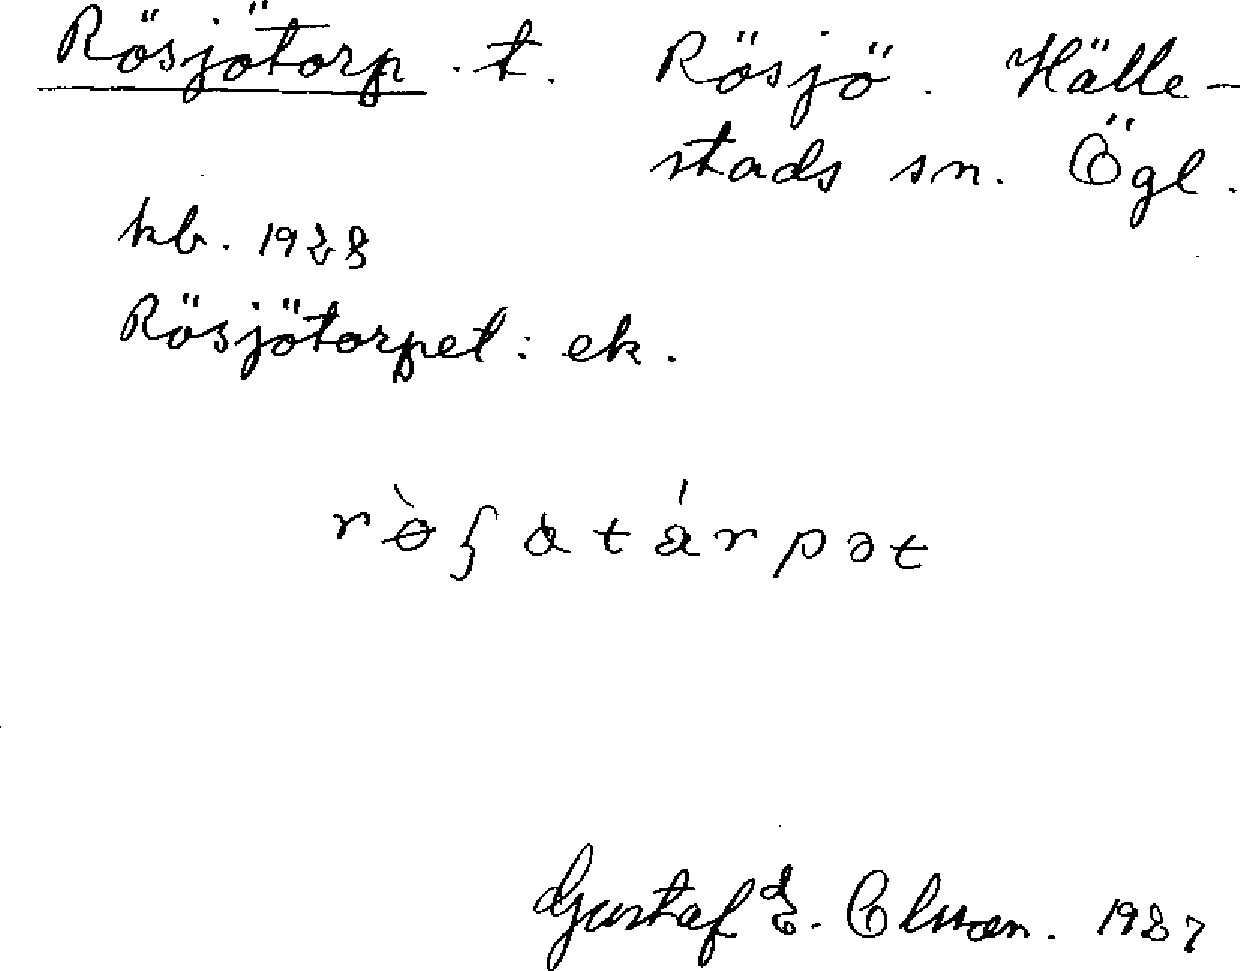 Rösjötorp . t. Rösjö. Hälle-
stads sn. Ögl.
kb. 1928
Rösjötorpet : ek.
Gustaf E. Olsson. 1937